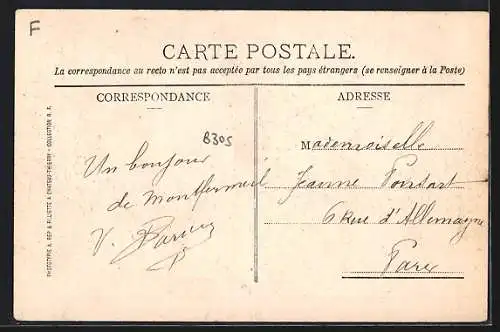 F
CARTE POSTALE.
La correspondance au recto n'est pas acceptée par tous les pays étrangers (se renseigner à la Poste)
CORRESPONDANCE
B305
Un bonjour
de Montfermeil
V.
ADRESSE
Mademoiselle
Jeanne Ponsart
6 Rue d'Allemagne
Paris
PHOTOTYPIE A. REP & FILLIETTE A CHATEAU-THIERRY - COLLECTION R. F.